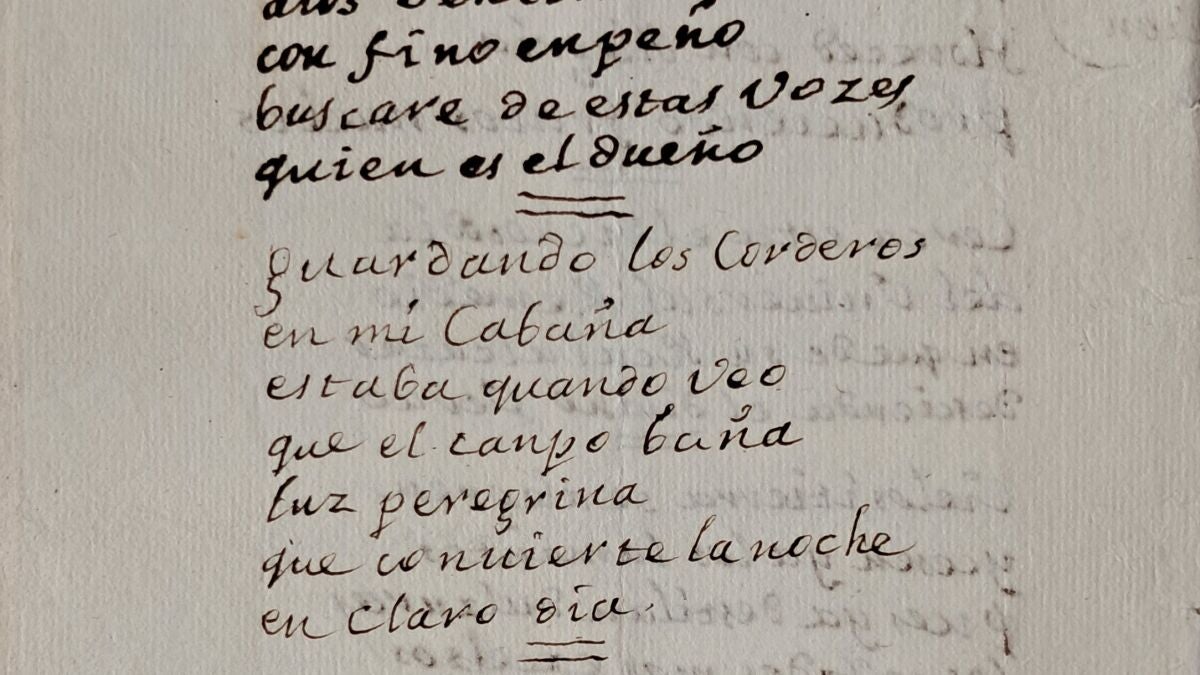 con fino enpeño
buscare de estas vozes
quien es el dueño
guardando los Corderos
en mi Cabaña
estaba quando veo
que el canpo baña
luz peregrina
que convierte la noche
en claro dia.